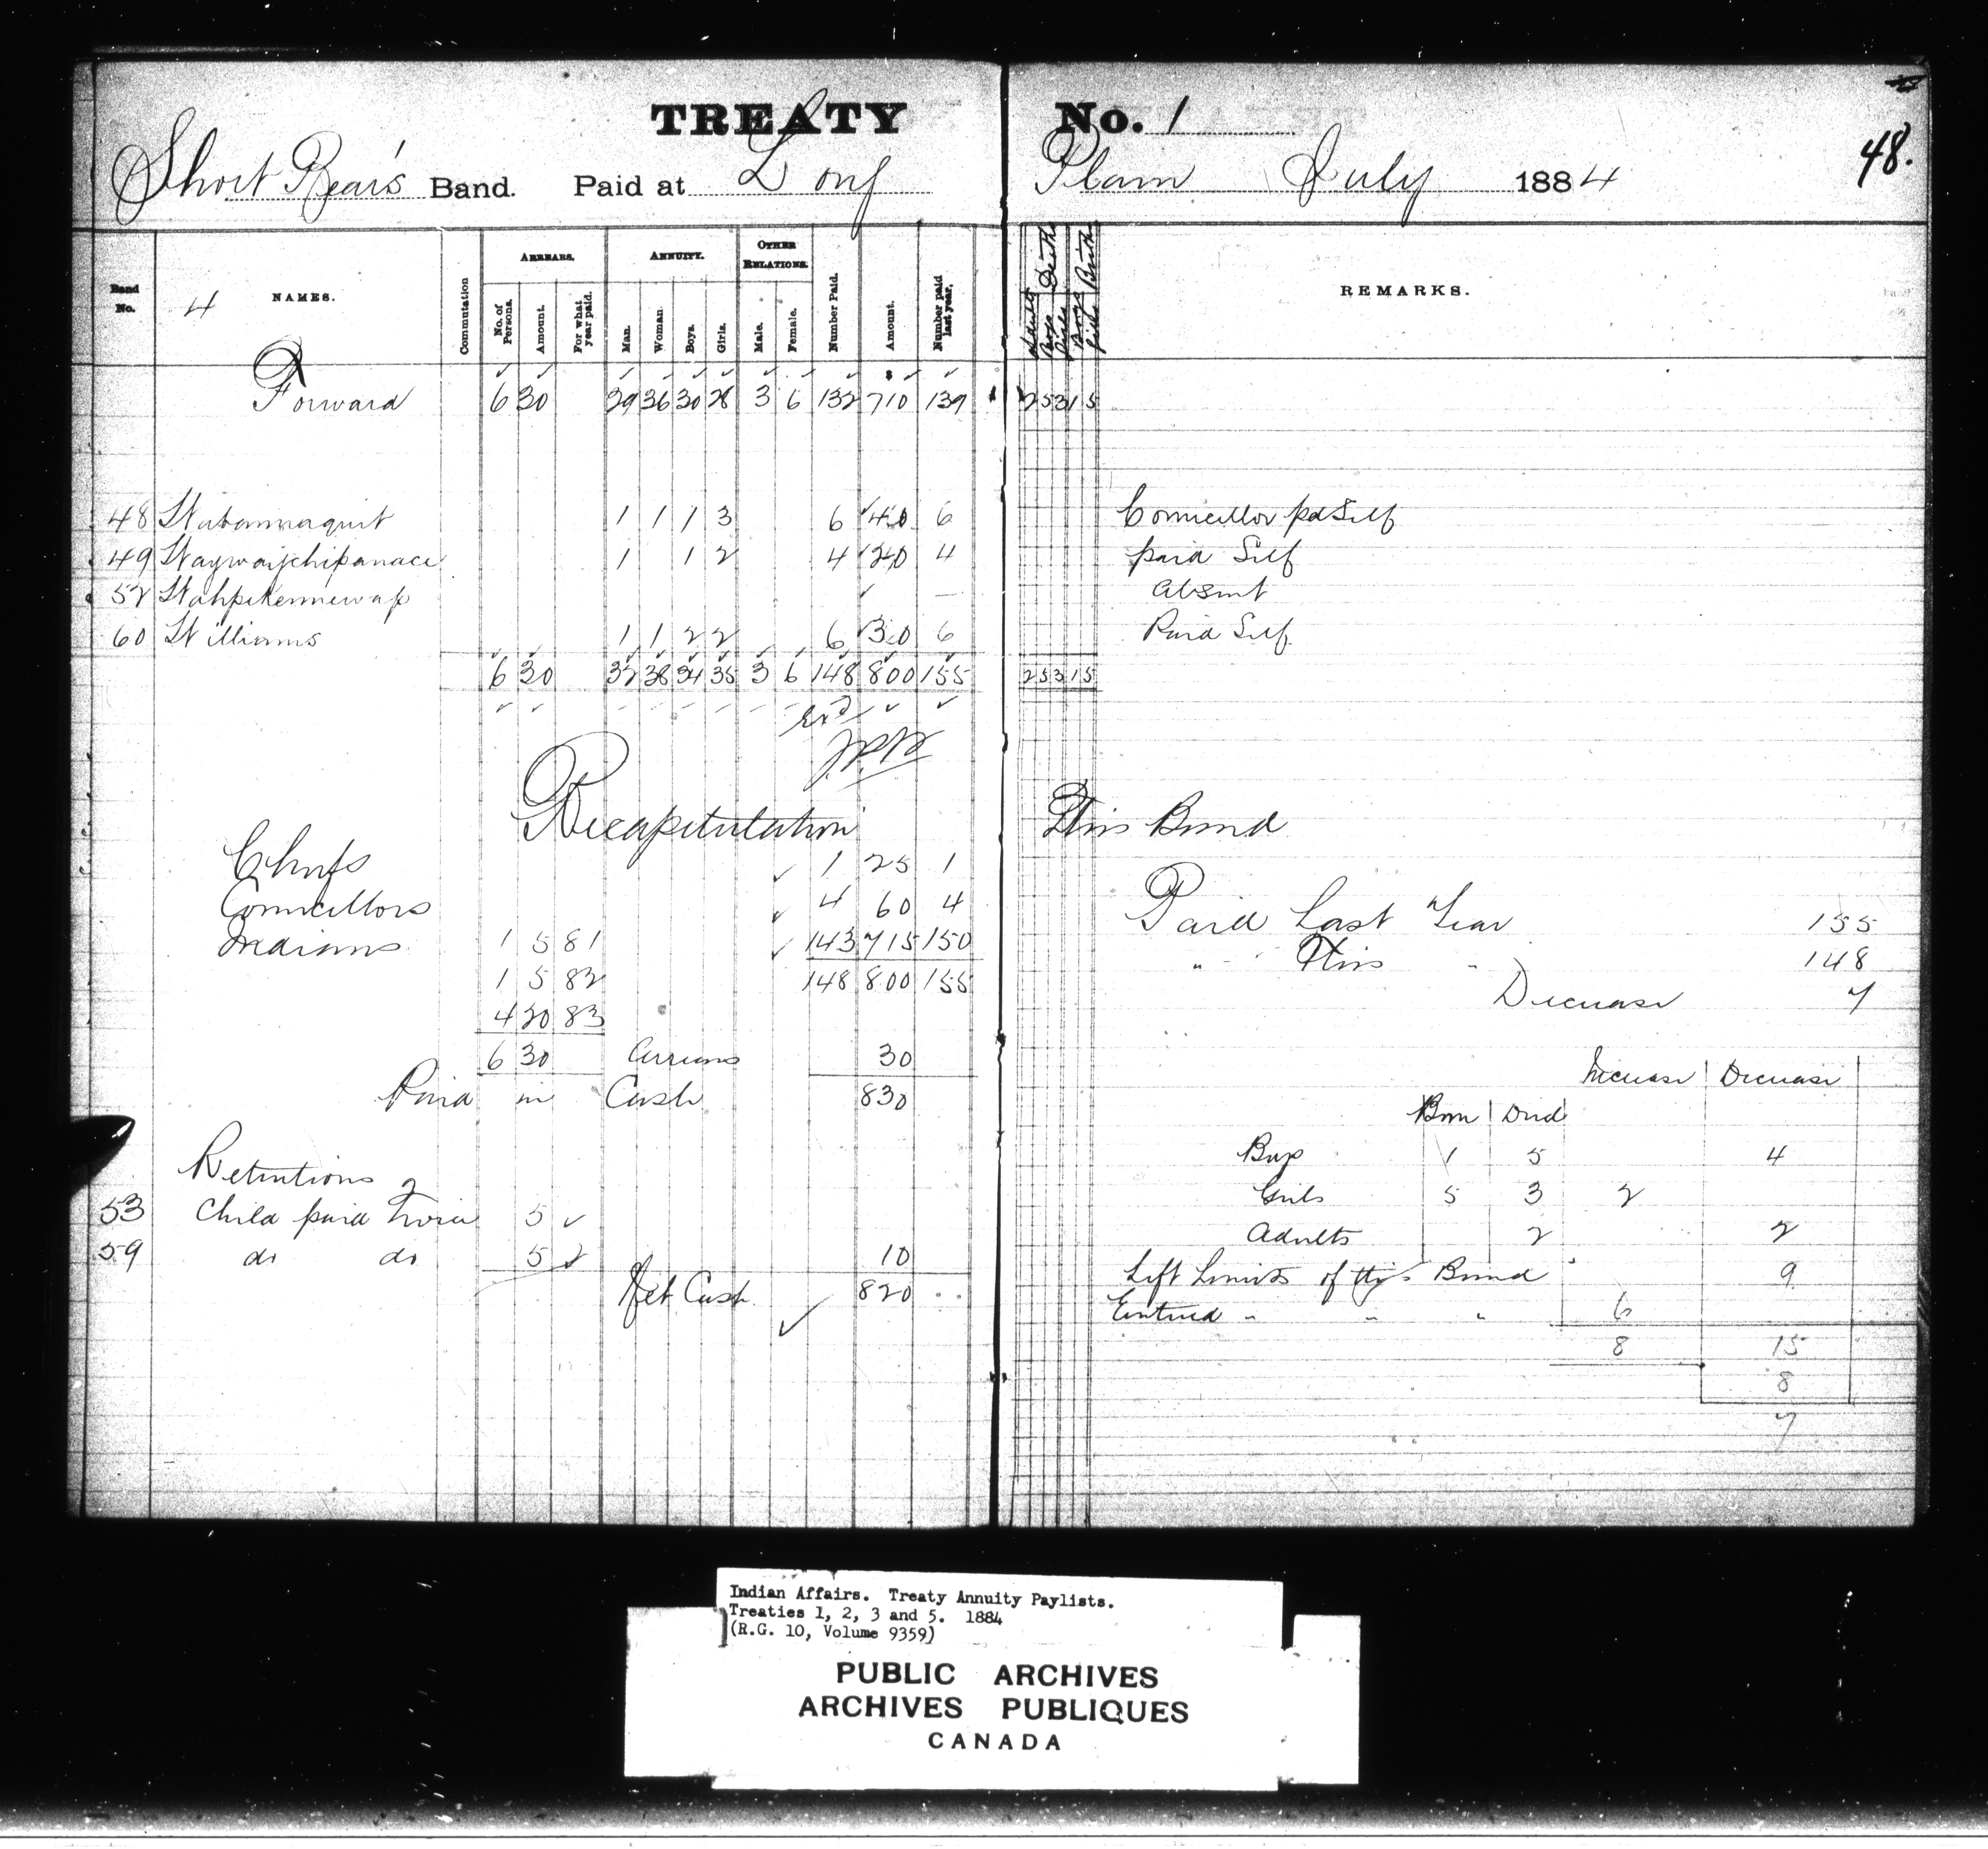 TREATY No. 1
48.
Short Bear's Band. Paid at Long Plain July 1884
Band No. 4 NAMES. Commutation ARREARS. No. of Persons. Amount. For what year paid. ANNUITY. Man. Woman Boys. Girls. OTHER RELATIONS. Male. Female. Number Paid. Amount. Number paid last year. Adults Boys Girls Deaths Boys Girls Births REMARKS.
Forward 6 30 29 36 30 28 3 6 132 $710 139 2 5 3 1 5
48 1 1 1 3 6 40 6 Councillor pd Self
49 1 1 2 4 20 4 paid Self
52 — Absent
60 Williams 1 1 2 2 6 30 6 Paid Self
6 30 32 38 34 35 3 6 148 800 155 2 5 3 1 5
Recapitulation This Band
Chiefs 1 25 1
Councillors 4 60 4
Indians 1 5 81 143 715 150
1 5 82 148 800 155
4 20 83
6 30 Arrears 30
Paid in Cash 830
Retentions
53 Child paid twice 5
59 do do 5 10
Net Cash 820
Paid Last Year 155
" This " 148
Decrease 7
Increase Decrease
Born Died
Boys 1 5 4
Girls 5 3 2
Adults 2 2
Left Limits of this Band 9
Entered " " " 6
8 15
8
7
Indian Affairs. Treaty Annuity Paylists.
Treaties 1, 2, 3 and 5. 1884
(R.G. 10, Volume 9359)
PUBLIC ARCHIVES
ARCHIVES PUBLIQUES
CANADA